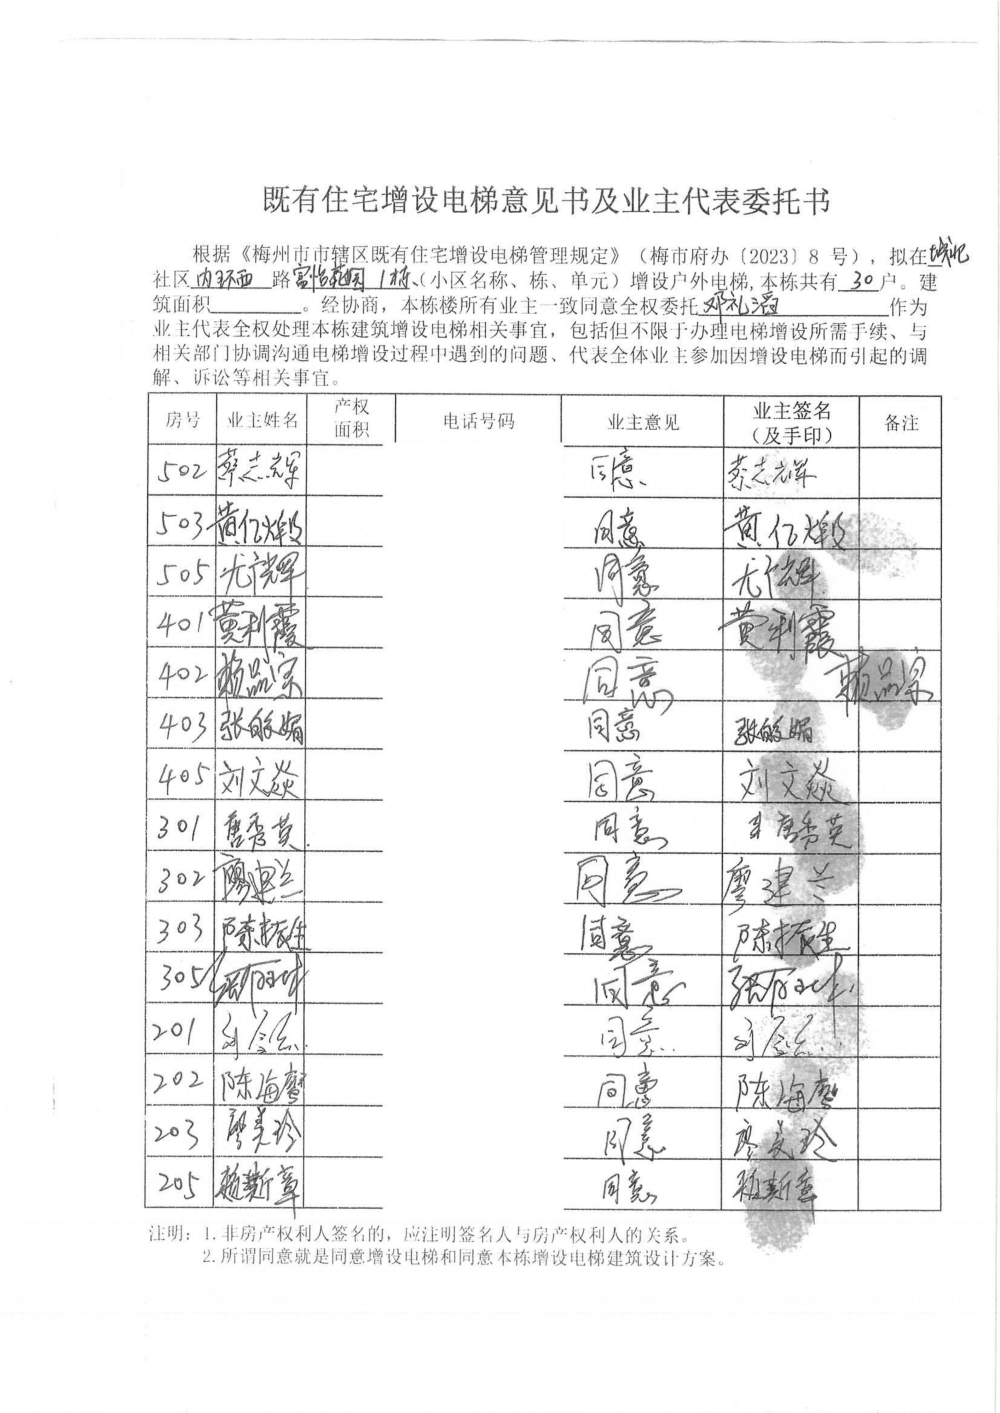 既有住宅增设电梯意见书及业主代表委托书
根据《梅州市市辖区既有住宅增设电梯管理规定》（梅市府办〔2023〕8 号），拟在城北
社区内环西路富怡花园1栋（小区名称、栋、单元）增设户外电梯,本栋共有30户。建
筑面积________。经协商，本栋楼所有业主一致同意全权委托邓礼滔作为
业主代表全权处理本栋建筑增设电梯相关事宜，包括但不限于办理电梯增设所需手续、与
相关部门协调沟通电梯增设过程中遇到的问题、代表全体业主参加因增设电梯而引起的调
解、诉讼等相关事宜。
房号 业主姓名 产权面积 电话号码 业主意见 业主签名（及手印） 备注
502 蔡志辉 同意 蔡志辉
503 黄亿 同意 黄亿
505 尤广辉 同意 尤广辉
401 黄利霞 同意 黄利霞
402 赖品宗 同意 赖品宗
403 张 媚 同意 张 媚
405 刘文焱 同意 刘文焱
301 唐秀英 同意 唐秀英
302 廖建兰 同意 廖建兰
303 陈振生 同意 陈振生
305 同意
201 刘 同意 刘
202 陈海 同意 陈海
203 廖美玲 同意 廖美玲
205 赖新章 同意 赖新章
注明：1.非房产权利人签名的，应注明签名人与房产权利人的关系。
2.所谓同意就是同意增设电梯和同意本栋增设电梯建筑设计方案。